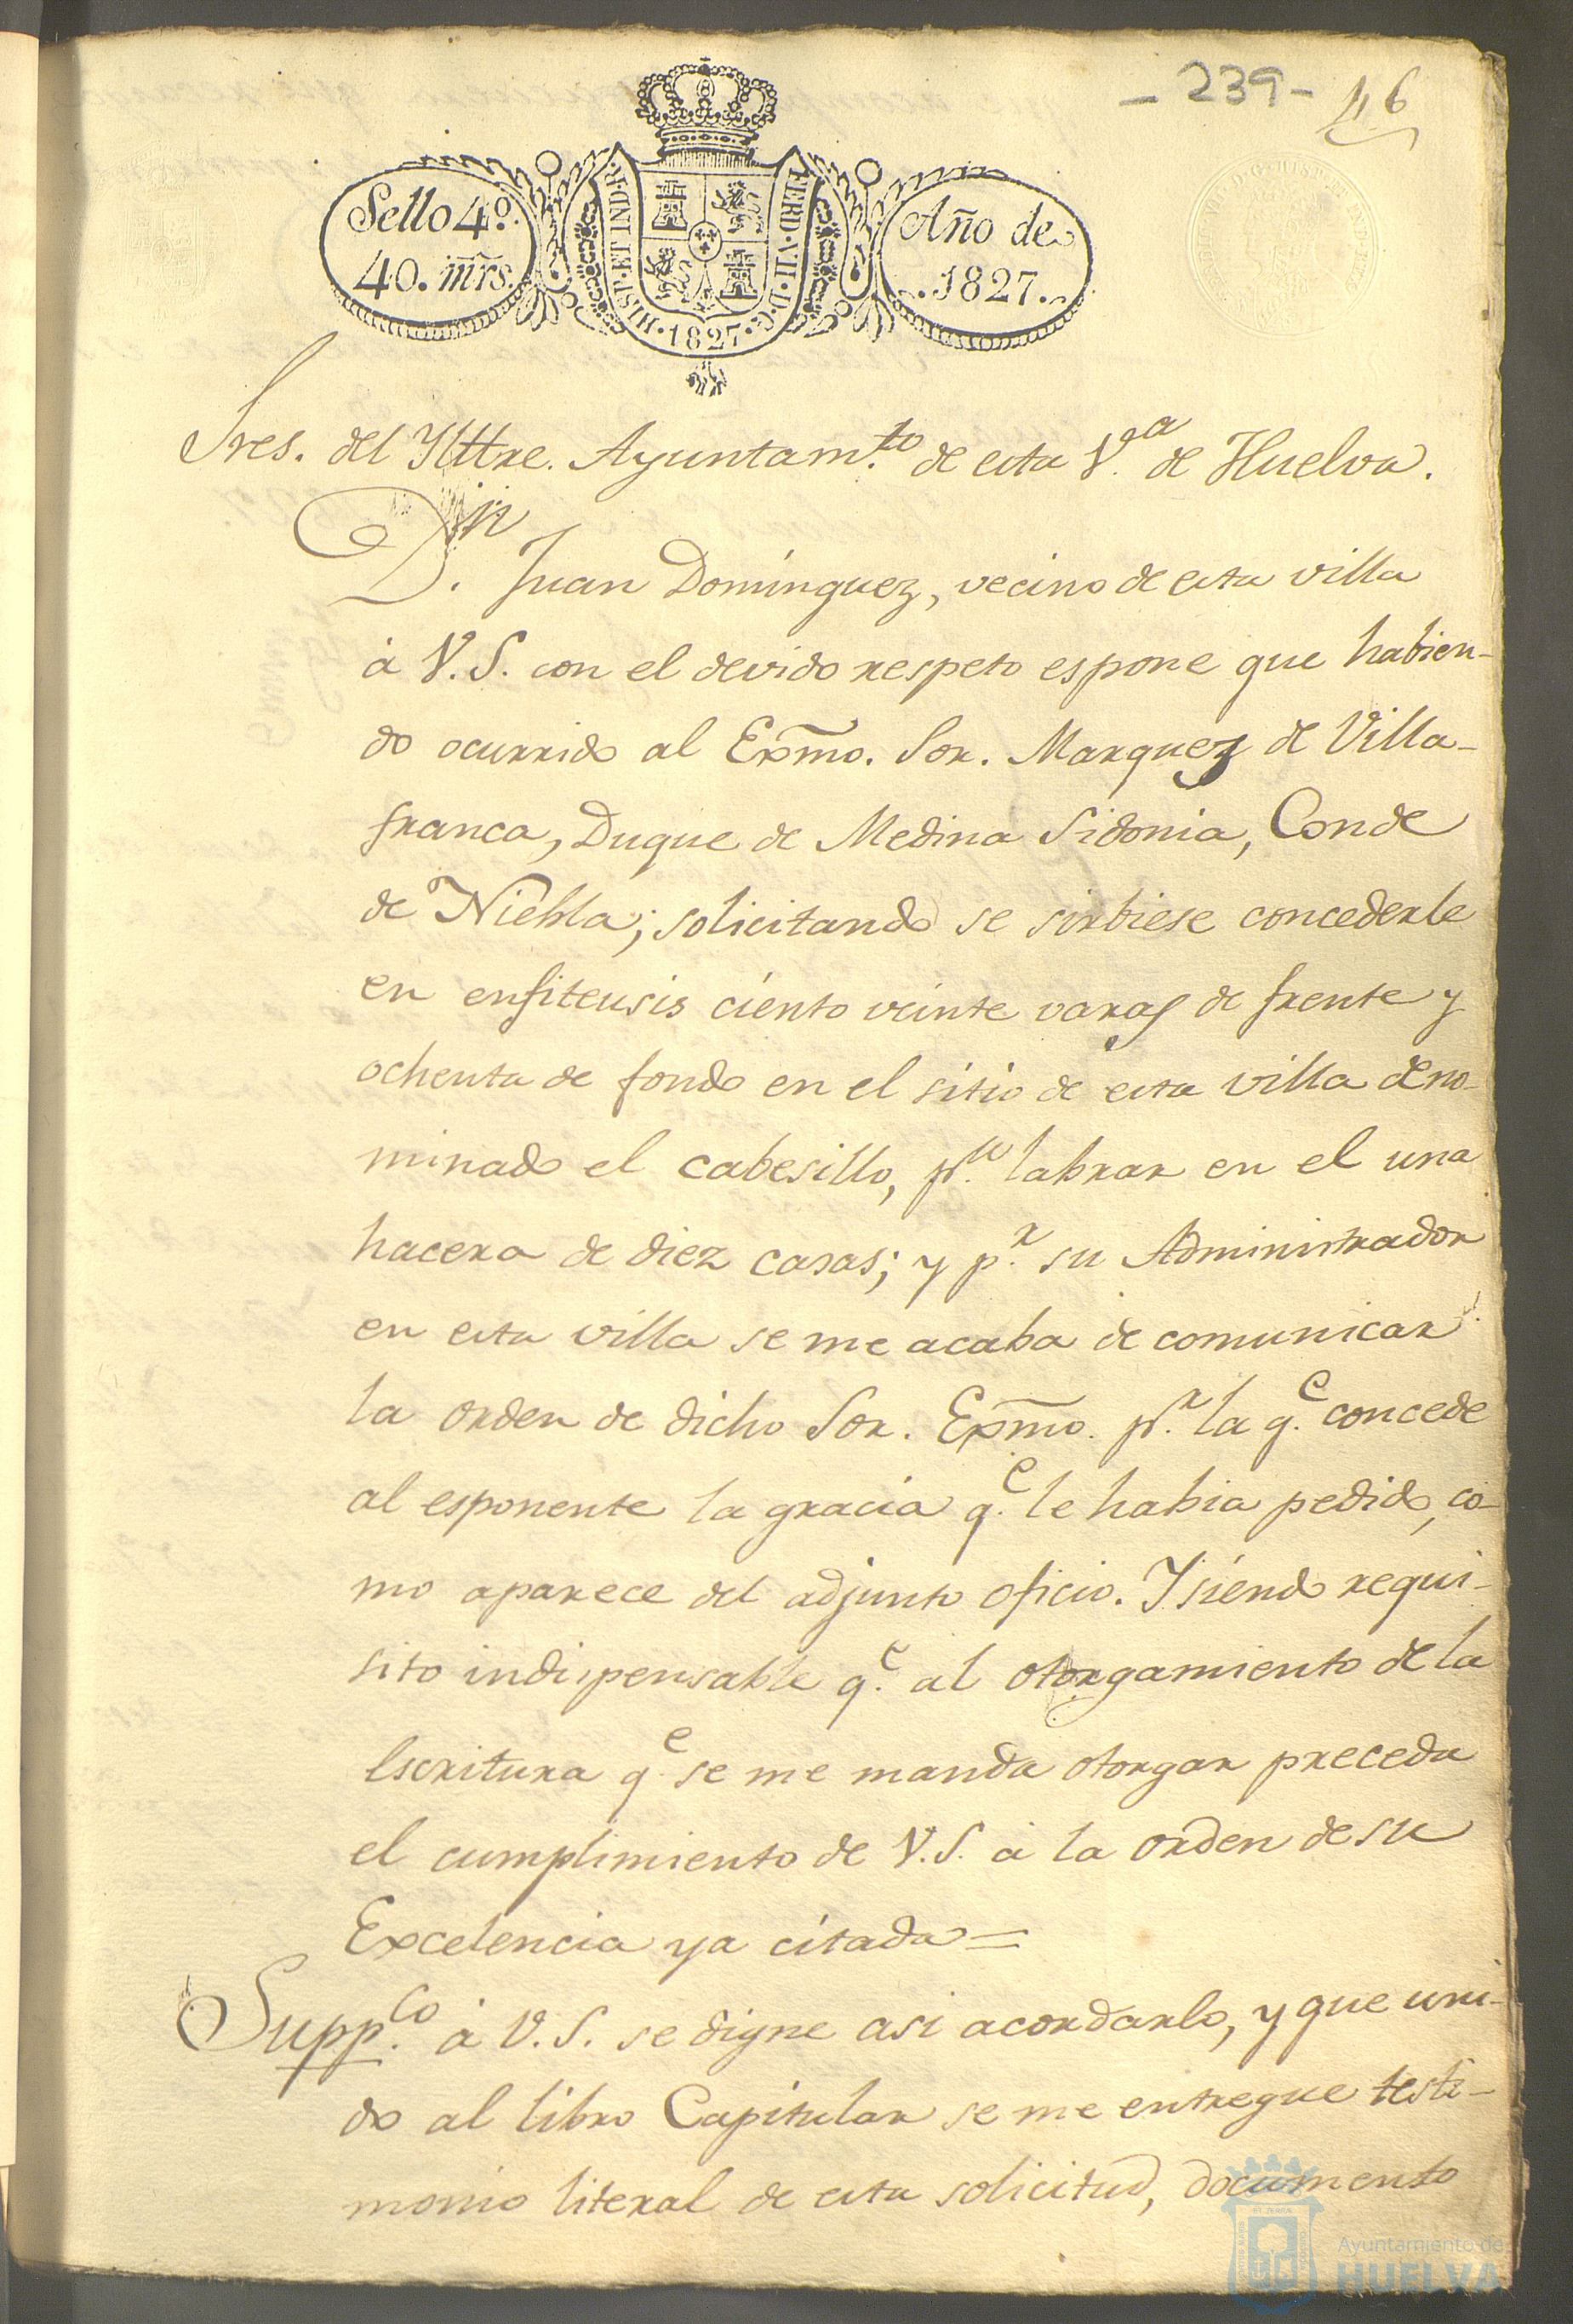 - 239 -
46
Sello 4º.
40. mrs.
HISP. ET IND. R.
FERD. VII. D. G.
. 1827 .
Año de
. 1827 .
Sres. del Ylttre. Ayuntam.to de esta V.a de Huelva.
D.n Juan Domínguez, vecino de esta villa
à V.S. con el devido respeto espone que habien-
do ocurrido al Exmo. Sor. Marquez de Villa-
franca, Duque de Medina Sidonia, Conde
de Niebla; solicitando se sirbiese concederle
en enfiteusis ciento veinte varas de frente y
ochenta de fondo en el sitio de esta villa deno-
minado el cabesillo, p.a labrar en el una
hacera de diez casas; y p.r su Administrador
en esta villa se me acaba de comunicar
la orden de dicho Sor. Exmo. p.r la q.e concede
al esponente la gracia q.e le habia pedido, co-
mo aparece del adjunto oficio. Y siendo requi-
sito indispensable q.e al otorgamiento de la
Escritura q.e se me manda otorgar preceda
el cumplimiento de V.S. à la orden de su
Excelencia ya citada =
Supp.co à V.S. se digne asi acordarlo, y que uni-
do al libro Capitular se me entregue testi-
monio literal de esta solicitud, documento
Ayuntamiento de
HUELVA